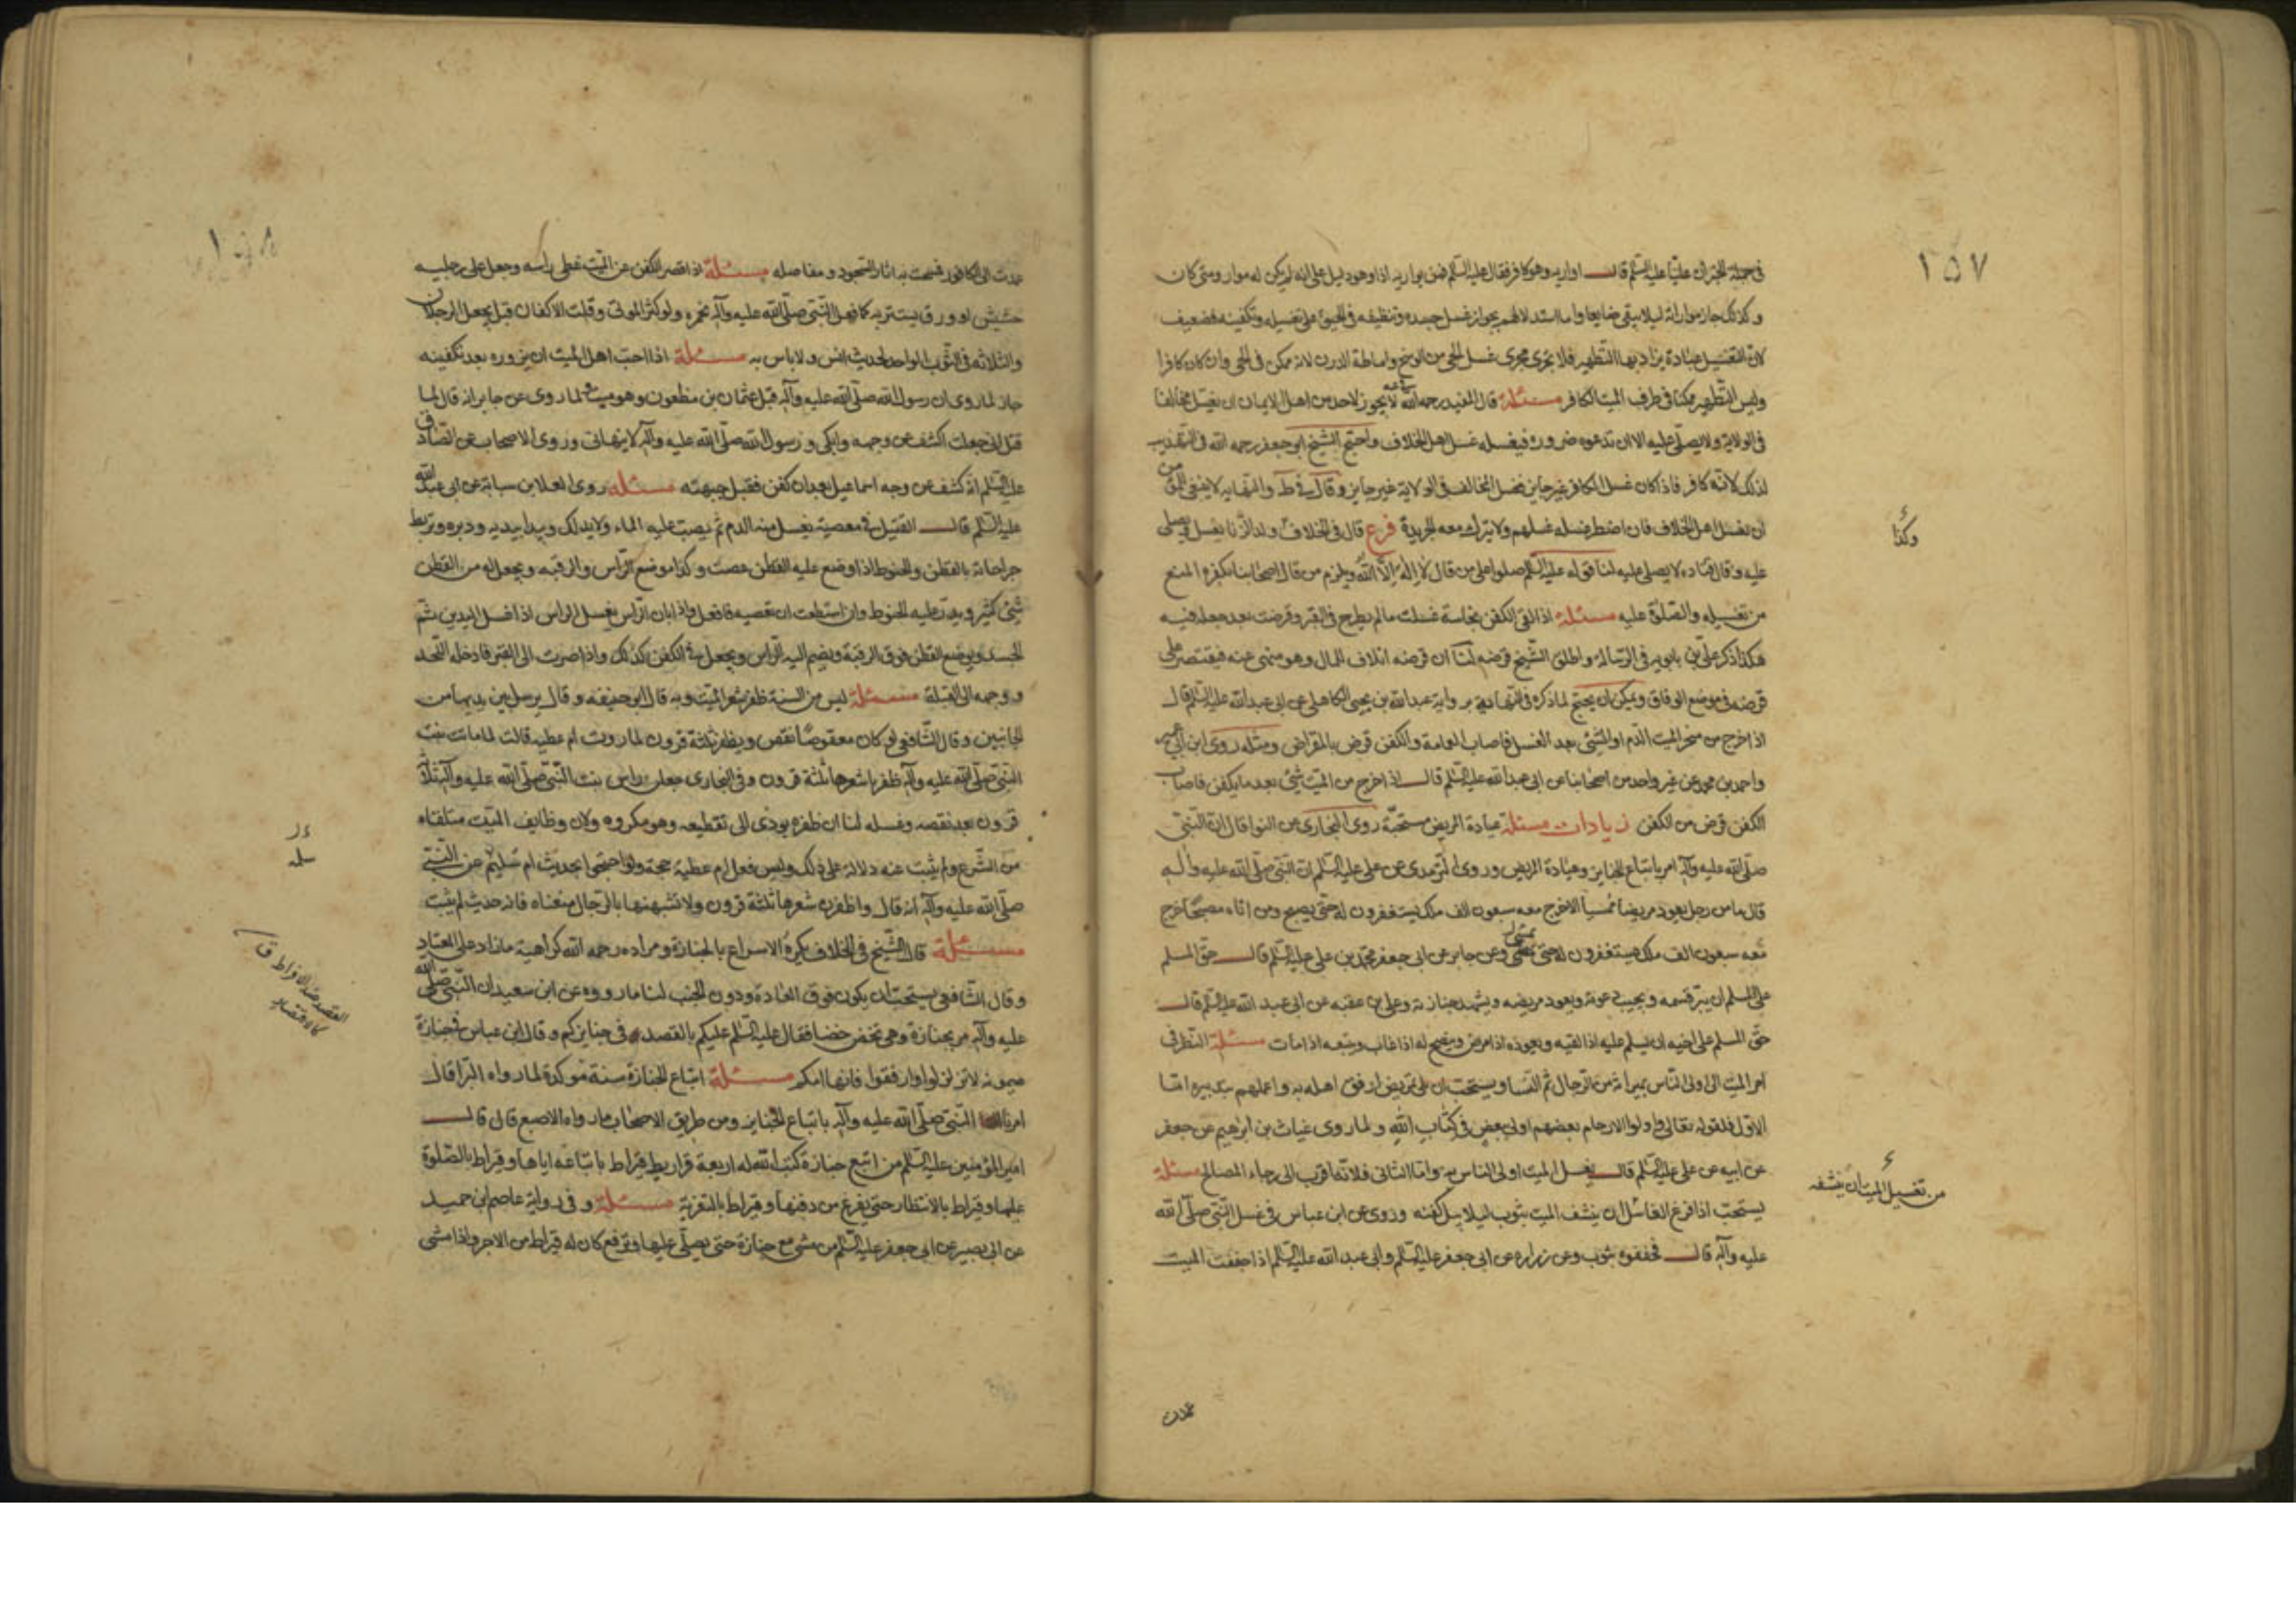 ٢٥٧
في جملة الخبر ان عليّا عليه السّلم قال اواريه وهو كافر فقال عليه السّلم فمن يواريه اذا وهو دليل على انه لم يكن له موار ومتى كان
وكذلك جاز مواراته ليلا يبقى ضايعا واما استدلالهم بجواز غسل جسده وتنظيفه في الحيوة على تغسيله وتكفينه فضعيف
لان التغسيل عبادة يراد بها التطهير فلا يجرى مجرى غسل الحي من الوسخ واماطة الدرن لانه ممكن في الحي وان كان كافرا
وليس التطهير ممكنا في طرف الميت الكافر مسئلة قال المفيد رحمه الله لا يجوز لاحد من اهل الايمان ان يغسل مخالفا
في الولاية ولا يصلى عليه الا ان تدعوه ضرورة فيغسله غسل اهل الخلاف واحتج الشيخ ابو جعفر رحمه الله في التهذيب
لذلك لانّه كافر فاذا كان غسل الكافر غير جايز فغسل المخالف في الولاية غير جايز وقال في ط والنهايه لا ينبغي للمؤمن
ان يغسل اهل الخلاف فان اضطر غسله غسلهم ولا يترك معه الجريدة فرع قال في الخلاف ولد الزنا يغسل ويصلى
وكذا
عليه وقال قتاده لا يصلى عليه لنا قوله عليه السّلم صلوا على من قال لا اله الا الله ويلزم من قال اصحابنا بكفره المنع
من تغسيله والصّلوة عليه مسئلة اذا لقى الكفن نجاسة غسلت ما لم يطرح في القبر وقرضت بعد جعله فيه
هكذا ذكر علي بن بابويه في الرّسالة واطلق الشّيخ قرضه لنا ان قرضه اتلاف للمال وهو منهى عنه فيقتصر على
قرضه في موضع الوفاق ويمكن ان يحتج لما ذكره في النهاية برواية عبد الله بن يحيى الكاهلي عن ابي عبد الله عليه السّلم قال
اذا خرج من منخر الميت الدّم او الشّئ بعد الغسل فاصاب العمامة والكفن قرض بالمقراض ومثله روى ابن ابي عمير
واحمد بن محمد عن غير واحد من اصحابنا عن ابي عبد الله عليه السّلم قال اذا خرج من الميّت شئ بعد ما يكفن فاصاب
الكفن قرض من الكفن زيادات مسئلة عيادة المريض مستحبّة روى البخارى عن البرا قال ان النبيّ
صلّى الله عليه وآله امر باتباع الجنايز وعيادة المريض وروى الترمدى عن على عليه السّلم ان النبيّ صلّى الله عليه واله
قال ما من رجل يعود مريضا ممسيا الا خرج معه سبعون الف ملك يستغفرون له حتى يصبح ومن اتاه مصبحا خرج
معه سبعون الف ملك يستغفرون له حتى يمسى وعن جابر عن ابي جعفر محمد بن على عليه السّلم قال حق المسلم
على المسلم ان يبرّ قسمه ويجيب دعوته ويعود مريضه ويشهد جنازته وعلى بن عقبه عن ابي عبد الله عليه السّلم قال
حق المسلم على اخيه ان يسلم عليه اذا لقيه ويعوده اذا مرض وينصح له اذا غاب ويتبعه اذا مات مسئلة النّظر في
امر الميت الى اولى النّاس بميراثه من الرجال ثم النّسا ويستحب ان يلى تمريض ارفق اهله به واعلمهم بتدبيره امّا
الاوّل فلقوله تعالى واولوا الارحام بعضهم اولى ببعض في كتاب الله ولما روى غياث بن ابرهيم عن جعفر
عن ابيه عن على عليه السّلم قال يغسل الميت اولى الناس به وامّا الثاني فلانّه اقرب الى رجاء المصالح مسئلة
من تغسيل الميت ان ينشفه
يستحب اذا فرغ الغاسل ان ينشف الميت بثوب ليلا يبل كفنه وروى عن ابن عباس في غسل النبيّ صلّى الله
عليه وآله قال فجففوه بثوب وعن زراره عن ابي جعفر عليه السّلم وابي عبد الله عليه السّلم اذا جففت الميت
عمدت
عمدت الى الكافور فمسحت به اثار السّجود ومفاصله مسئلة اذا قصر الكفن عن الميّت غطى رأسه وجعل على رجليه
حشيش او ورق يستتر به كما فعل النّبيّ صلّى الله عليه وآله بحمزه ولو كثر الموتى وقلت الاكفان قيل يجعل الرجلان
والثلاثه في الثّوب الواحد لحديث انس ولا باس به مسئلة اذا احبّ اهل الميت ان يزوروه بعد تكفينه
جاز لما روى ان رسول الله صلّى الله عليه وآله قبل عثمان بن مظعون وهو ميت ولما روى عن جابر انه قال لما
قتل ابي جعلت اكشف عن وجهه وابكى ورسول الله صلّى الله عليه وآله لا ينهاني وروى الاصحاب عن الصّادق
عليه السّلم انه كشف عن وجه اسماعيل بعد ان كفن فقبل جبهته مسئلة روى العلا بن سيابة عن ابي عبد الله
عليه السّلم قال القتيل في معصية يغسل منه الدم ثم يصب عليه الماء ولا يدلك ويبدا بيديه ودبره وتربط
جراحاته بالقطن والحنوط اذا وضع عليه القطن عصب وكذا موضع الرّاس والرقبه ويجعل له من القطن
شئ كثير ويذر عليه الحنوط وان استطعت ان تعصبه فافعل واذا بان الرّاس يغسل الراس اذا غسل اليدين ثم
الجسد ويوضع القطن فوق الرقبة ويضم اليه الرّاس ويجعل في الكفن كذلك واذا صرت الى القبر فادخله اللّحد
ووجهه الى القبلة مسئلة ليس من السنة ظفر شعر الميّت وبه قال ابو حنيفه وقال يرسل بين يديها من
الجانبين وقال الشّافعى لو كان معقوصا نقض ويظفر ثلثة قرون لما روت ام عطيه قالت لما ماتت بنت
النبي صلّى الله عليه وآله ظفرنا شعرها ثلثة قرون وفى البخارى جعلن رأس بنت النبيّ صلّى الله عليه وآله ثلثة
قرون بعد نقضه وغسله لنا ان ظفره يؤدى الى تقطيعه وهو مكروه ولان وظايف الميّت متلقاه
سلمه
من الشّرع ولم يثبت عنه دلالة على ذلك وليس فعل ام عطية حجة ولو احتجّوا بحديث ام سليم عن النّبيّ
صلّى الله عليه وآله انه قال واظفرن شعرها ثلثة قرون ولا تشبهنها بالرّجال منعناه فانه حديث لم يثبت
مسئلة قال الشّيخ في الخلاف يكره الاسراع بالجنازة ومراده رحمه الله كراهية ما زاد على المعتاد
القصد ضد الافراط ق
كالاقتصاد
وقال الشّافعى يستحب ان يكون فوق العادة ودون الخبب لنا ما رووه عن ابن سعيد ان النّبيّ صلّى الله
عليه وآله مر بجنازة وهى تخض خضا فقال عليه السّلم عليكم بالقصد في جنايزكم وقال ابن عباس في جنازة
ميمونه لا تزلزلوا وارفقوا فانها امكم مسئلة اتباع الجنازة سنة مؤكدة لما رواه البرا قال
امرنا النّبيّ صلّى الله عليه وآله باتباع الجنايز ومن طريق الاصحاب ما رواه الاصبغ قال قال
امير المؤمنين عليه السّلم من اتبع جنازة كتب الله له اربعة قراريط قيراط باتباعه اياها وقيراط بالصّلوة
عليها وقيراط بالانتظار حتى يفرغ من دفنها وقيراط بالتعزية مسئلة وفى رواية عاصم ابن حميد
عن ابي بصير عن ابي جعفر عليه السّلم من مشى مع جنازة حتى يصلّى عليها وترفع كان له قيراط من الاجر واذا مشى